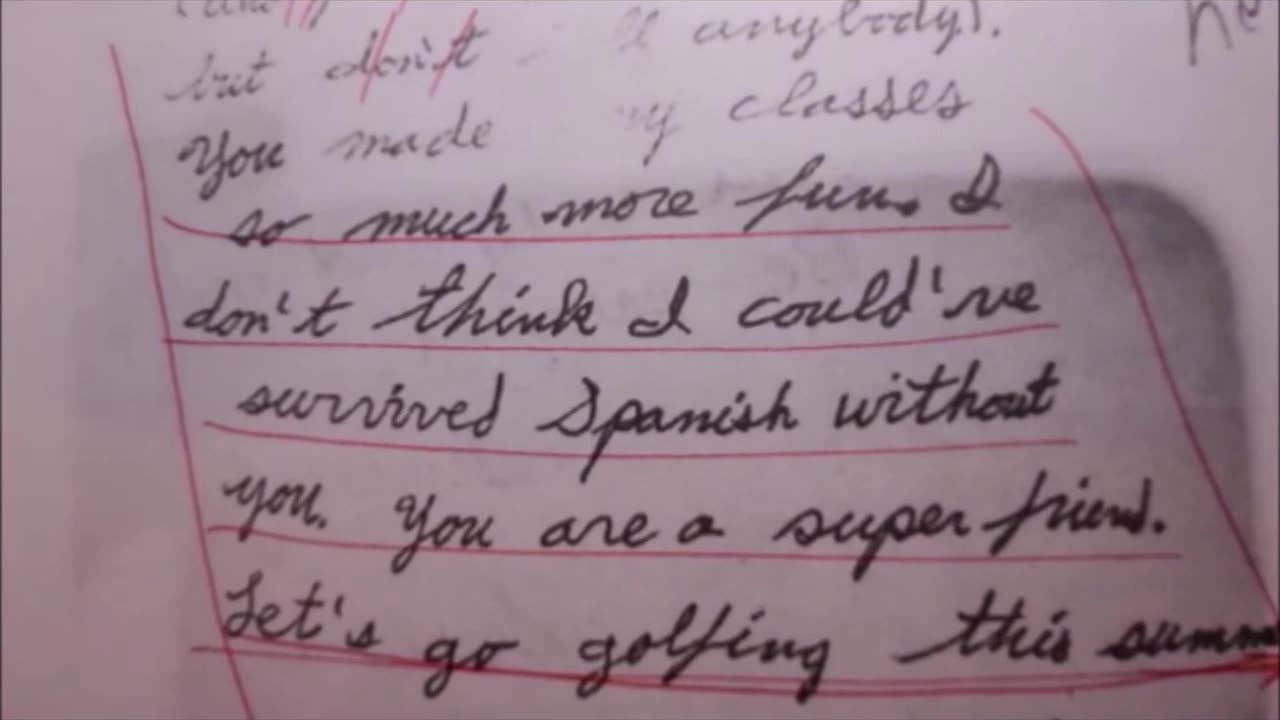 but don't anybody).
You made my classes
so much more fun. I
don't think I could've
survived Spanish without
you. You are a super friend.
Let's go golfing this summ